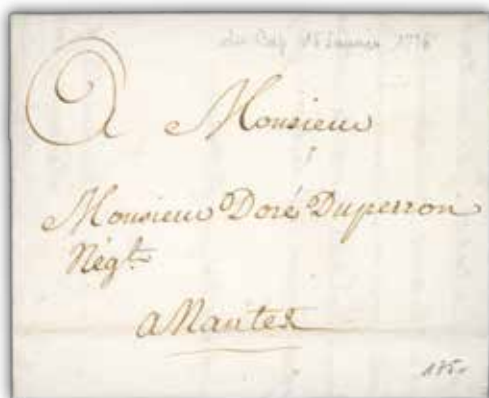 du Cap 15 Janvier 1776
A Monsieur
Monsieur Doré Duperron
Négt
a Nantes
175